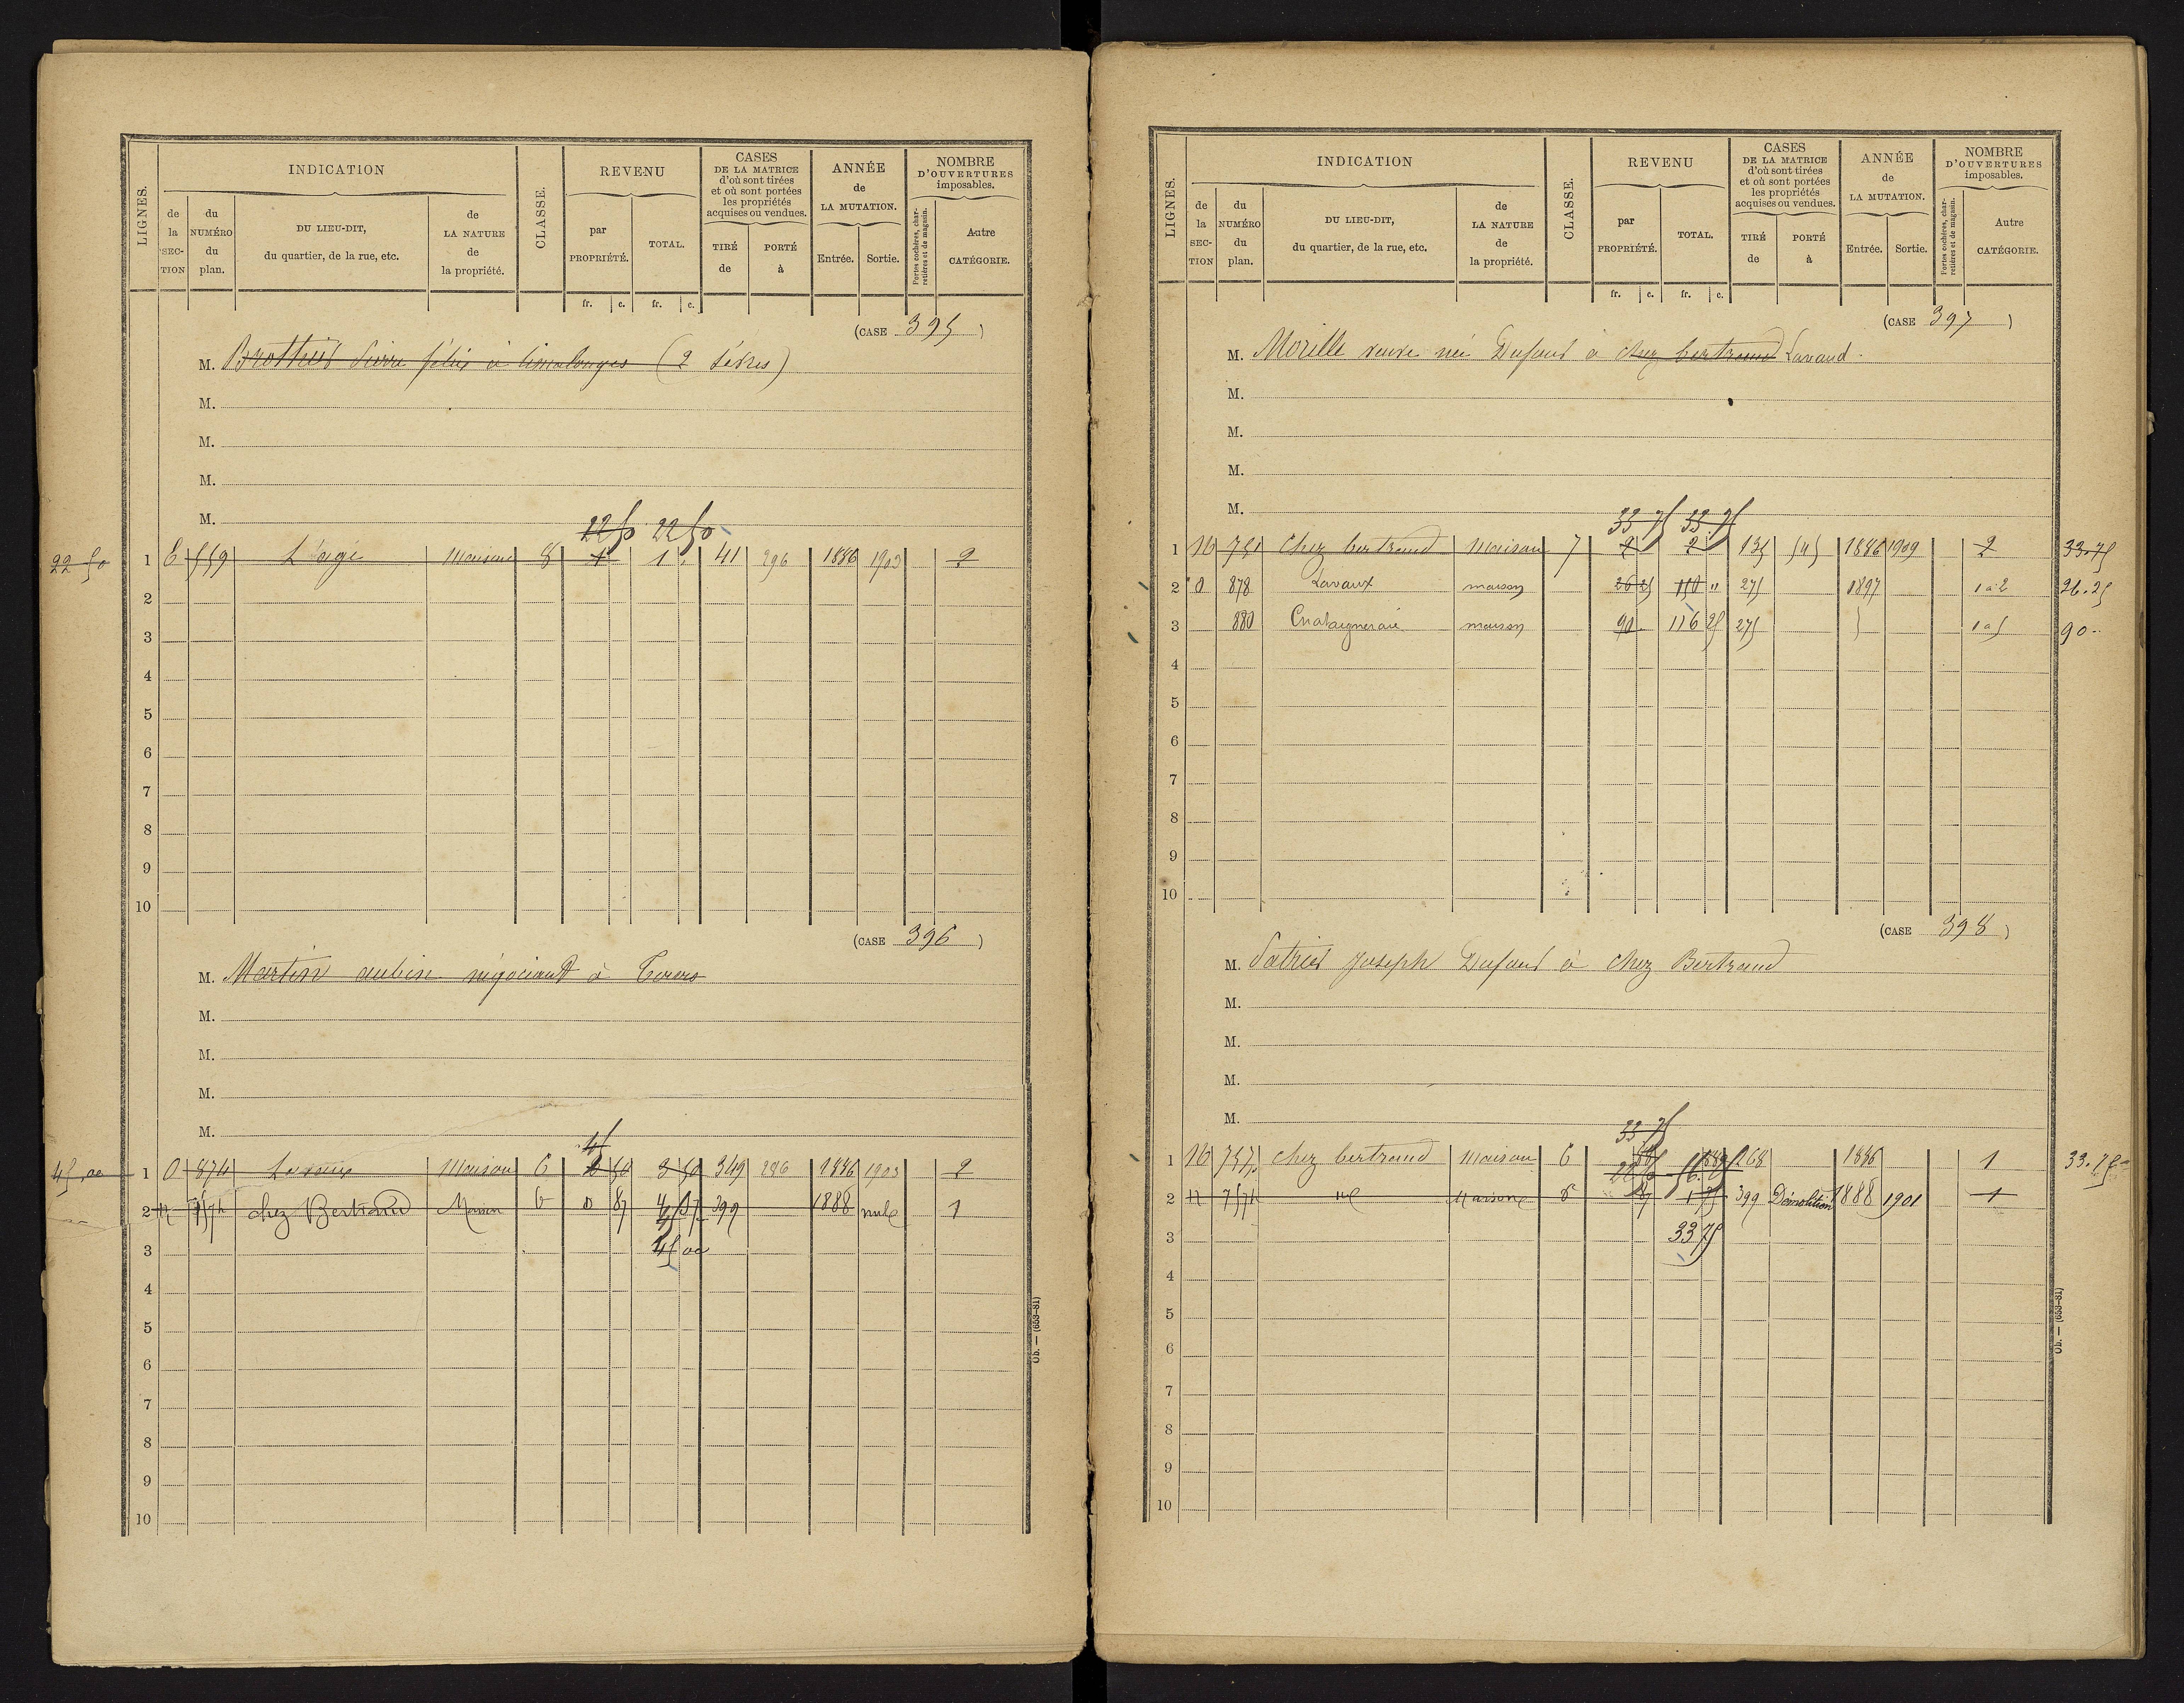 LIGNES.
INDICATION
de la SECTION
du NUMÉRO du plan.
DU LIEU-DIT, du quartier, de la rue, etc.
de LA NATURE de la propriété.
CLASSE.
REVENU
par PROPRIÉTÉ.
TOTAL.
fr. c. fr. c.
CASES DE LA MATRICE d'où sont tirées et où sont portées les propriétés acquises ou vendues.
TIRÉ de
PORTÉ à
ANNÉE de LA MUTATION.
Entrée. Sortie.
NOMBRE D'OUVERTURES imposables.
Portes cochères, charretières et de magasin.
Autre CATÉGORIE.
(CASE 395)
M. félix à limalonges (2 Sèvres)
M.
M.
M.
M.
22 50 22 50
22 50 1 E 559 L'age Maison 8 1 1 41 296 1886 1903 2
2
3
4
5
6
7
8
9
10
(CASE 396)
M. Martin aubin négociant à
M.
M.
M.
M.
45
45,00 1 O 874 Maison 6 3 50 349 286 1886 1903 2
2 chez Bertrand Maison 6 0 87 399 1888 nulle 1
3 45 00
4
5
6
7
8
9
10
Ob. — (653-81)
LIGNES.
INDICATION
de la SECTION
du NUMÉRO du plan.
DU LIEU-DIT, du quartier, de la rue, etc.
de LA NATURE de la propriété.
CLASSE.
REVENU
par PROPRIÉTÉ.
TOTAL.
fr. c. fr. c.
CASES DE LA MATRICE d'où sont tirées et où sont portées les propriétés acquises ou vendues.
TIRÉ de
PORTÉ à
ANNÉE de LA MUTATION.
Entrée. Sortie.
NOMBRE D'OUVERTURES imposables.
Portes cochères, charretières et de magasin.
Autre CATÉGORIE.
(CASE 397)
M. Morille veuve née Dufour à chez bertrand Lavaud.
M.
M.
M.
M.
33 75 33 75
1 751 Chez bertrand Maison 7 2 2 135 545 1886 1909 2 33.75
2 O 878 Lavaux maison 26 25 150 " 275 1897 1 à 2 26.25
3 880 Chataigneraie maison 90 116 25 275 1 à 5 90..
4
5
6
7
8
9
10
(CASE 398)
M. Joseph Dufour à chez Bertrand
M.
M.
M.
M.
33 75
1 757 chez bertrand Maison 6 268 1886 1 33.75
2 Maison 399 Démolition 1888 1901 1
3 33 75
4
5
6
7
8
9
10
Ob. — (653-81)